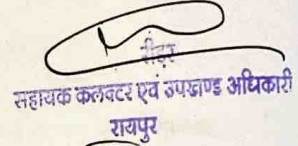 रीडर
सहायक कलक्टर एवं उपखण्ड अधिकारी
रायपुर